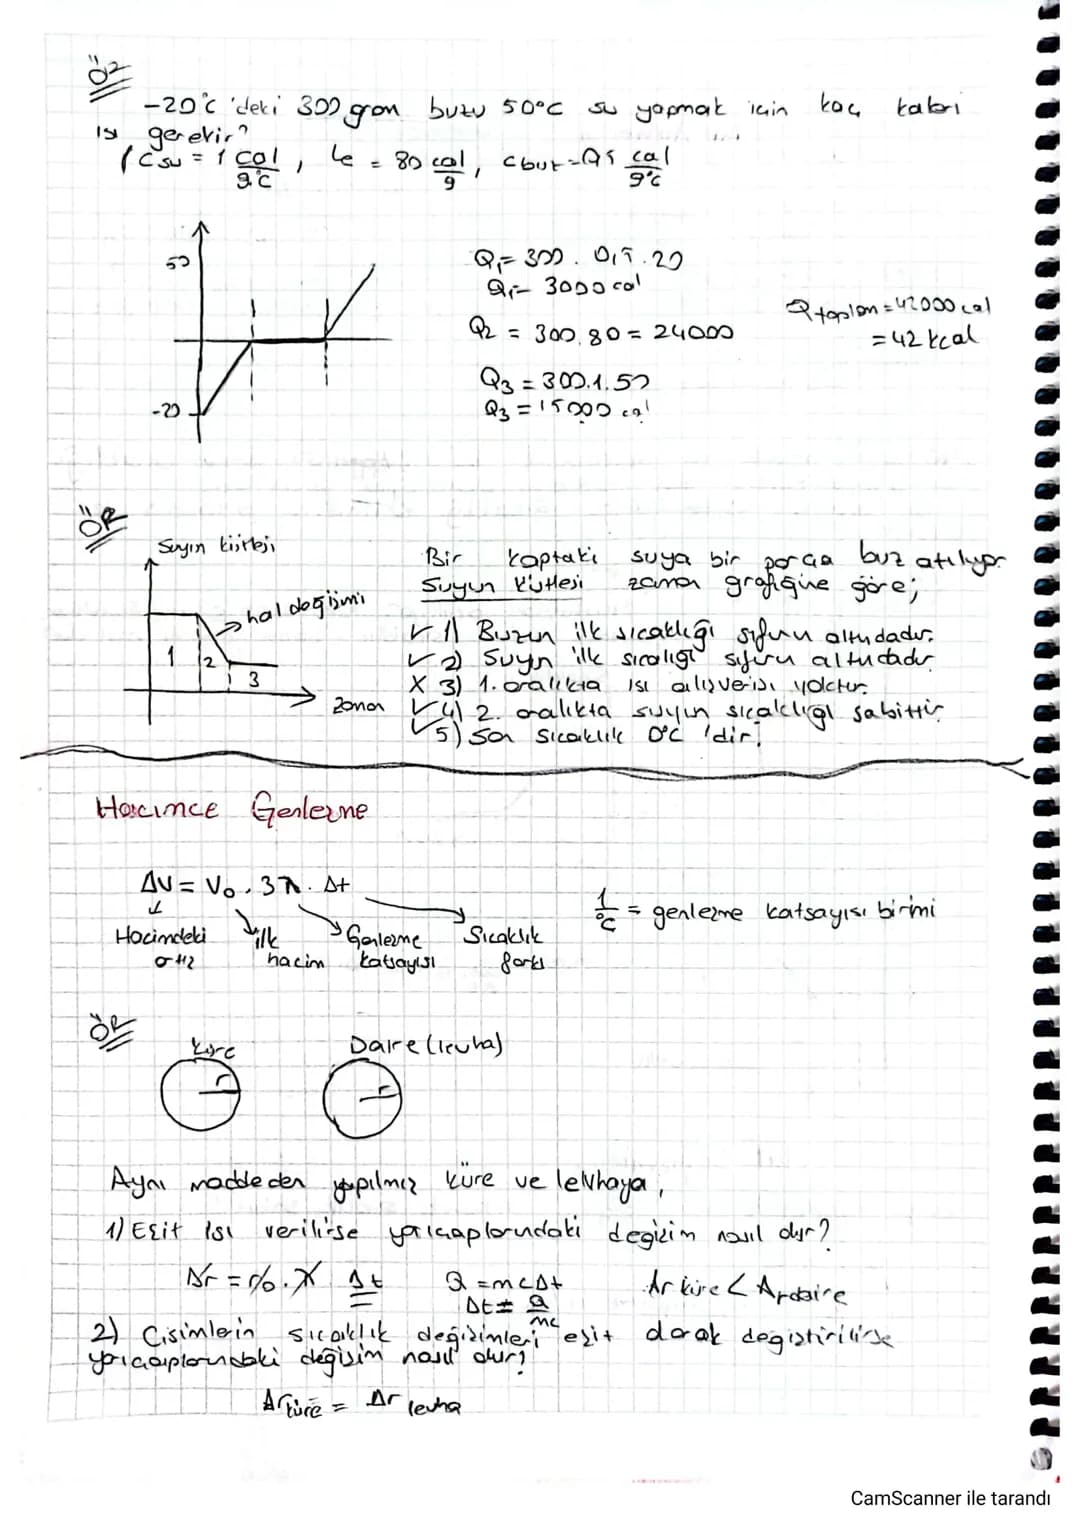 ÖR
-20°C 'deki 300 gram buzu 50°C su yapmak için kaç kalori
ısı gerekir?
(Csu = 1 cal/g°C, Le = 80 cal/g, cbuz=0,5 cal/g°C
50
-20
Q1= 300 . 0,5 . 20
Q1= 3000 cal
Q2 = 300.80 = 24000
Q3 = 300.1.50
Q3 = 15000 cal
Qtoplam = 42000 cal
= 42 kcal
ÖR
Suyun kütlesi
hal değişimi
1 2 3
Zaman
Bir kaptaki suya bir parça buz atılıyor
Suyun Kütlesi zaman grafiğine göre;
✓ 1) Buzun ilk sıcaklığı sıfırın altındadır.
✓ 2) Suyn ilk sıcalığı sıfırın altındadır
X 3) 1. aralıkta ısı alışverişi yoktur.
✓ 4) 2. aralıkta suyun sıcaklığı sabittir
✓ 5) Son sıcaklık 0°C 'dir.
Hacimce Genleşme
ΔV = V0 . 3λ . Δt
Hacimdeki artış
ilk hacim
Genleşme katsayısı
Sıcaklık farkı
1/°C = genleşme katsayısı birimi
ÖR
Küre
Daire (levha)
r
r
Aynı maddeden yapılmış küre ve levhaya,
1) Eşit ısı verilirse yarıçaplarındaki değişim nasıl olur?
Δr = r0 . λ Δt
Q = mcΔt
Δt = Q/mc
Δr küre < Δr daire
2) Cisimlerin sıcaklık değişimleri eşit olarak değiştirilirse
yarıçaplarındaki değişim nasıl olur?
Δr küre = Δr levha
CamScanner ile tarandı